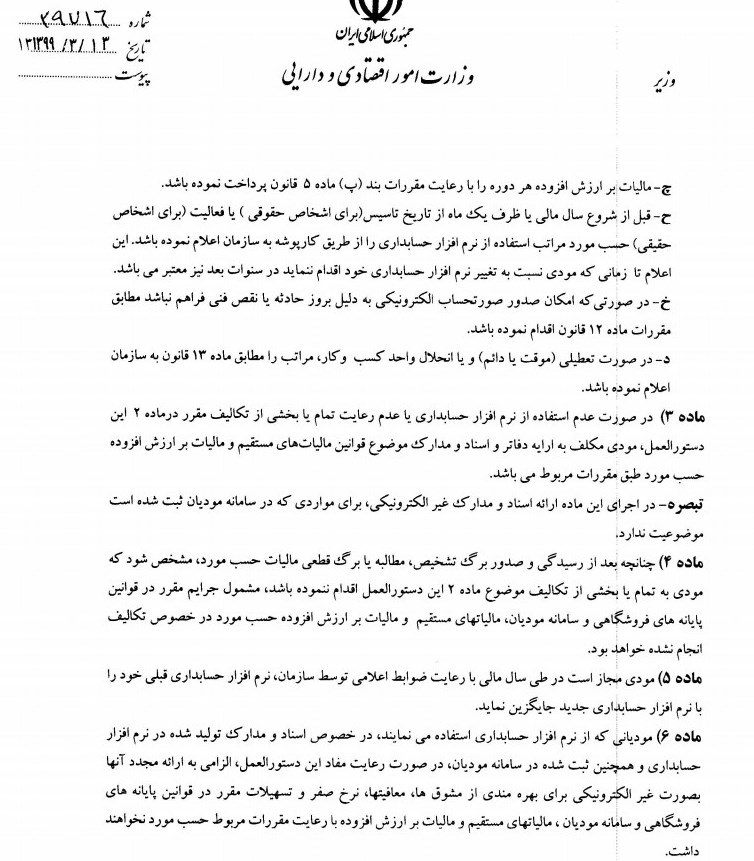 شماره ۳۹۷۱۶
تاریخ ۱۳۹۹/۳/۱۳
پیوست
جمهوری اسلامی ایران
وزارت امور اقتصادی و دارایی
وزیر
چ- مالیات بر ارزش افزوده هر دوره را با رعایت مقررات بند (پ) ماده ۵ قانون پرداخت نموده باشد.
ح- قبل از شروع سال مالی یا ظرف یک ماه از تاریخ تاسیس(برای اشخاص حقوقی ) یا فعالیت (برای اشخاص
حقیقی) حسب مورد مراتب استفاده از نرم افزار حسابداری را از طریق کارپوشه به سازمان اعلام نموده باشد. این
اعلام تا زمانی که مودی نسبت به تغییر نرم افزار حسابداری خود اقدام ننماید در سنوات بعد نیز معتبر می باشد.
خ- در صورتی‌که امکان صدور صورتحساب الکترونیکی به دلیل بروز حادثه یا نقص فنی فراهم نباشد مطابق
مقررات ماده ۱۲ قانون اقدام نموده باشد.
د- در صورت تعطیلی (موقت یا دائم) و یا انحلال واحد کسب وکار، مراتب را مطابق ماده ۱۳ قانون به سازمان
اعلام نموده باشد.
ماده ۳) در صورت عدم استفاده از نرم افزار حسابداری یا عدم رعایت تمام یا بخشی از تکالیف مقرر درماده ۲ این
دستورالعمل، مودی مکلف به ارایه دفاتر و اسناد و مدارک موضوع قوانین مالیات‌های مستقیم و مالیات بر ارزش افزوده
حسب مورد طبق مقررات مربوط می باشد.
تبصره- در اجرای این ماده ارائه اسناد و مدارک غیر الکترونیکی، برای مواردی که در سامانه مودیان ثبت شده است
موضوعیت ندارد.
ماده ۴) چنانچه بعد از رسیدگی و صدور برگ تشخیص، مطالبه یا برگ قطعی مالیات حسب مورد، مشخص شود که
مودی به تمام یا بخشی از تکالیف موضوع ماده ۲ این دستورالعمل اقدام ننموده باشد، مشمول جرایم مقرر در قوانین
پایانه های فروشگاهی و سامانه مودیان، مالیاتهای مستقیم و مالیات بر ارزش افزوده حسب مورد در خصوص تکالیف
انجام نشده خواهد بود.
ماده ۵) مودی مجاز است در طی سال مالی با رعایت ضوابط اعلامی توسط سازمان، نرم افزار حسابداری قبلی خود را
با نرم افزار حسابداری جدید جایگزین نماید.
ماده ۶) مودیانی که از نرم افزار حسابداری استفاده می نمایند، در خصوص اسناد و مدارک تولید شده در نرم افزار
حسابداری و همچنین ثبت شده در سامانه مودیان، در صورت رعایت مفاد این دستورالعمل، الزامی به ارائه مجدد آنها
بصورت غیر الکترونیکی برای بهره مندی از مشوق ها، معافیتها، نرخ صفر و تسهیلات مقرر در قوانین پایانه های
فروشگاهی و سامانه مودیان ، مالیاتهای مستقیم و مالیات بر ارزش افزوده با رعایت مقررات مربوط حسب مورد نخواهند
داشت.